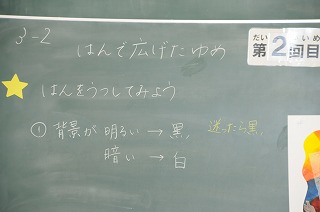 3-2
はんで広げたゆめ
第2回目
だい いめ
はんをうつしてみよう
① 背景が明るい → 黒, 迷ったら黒,
暗い → 白